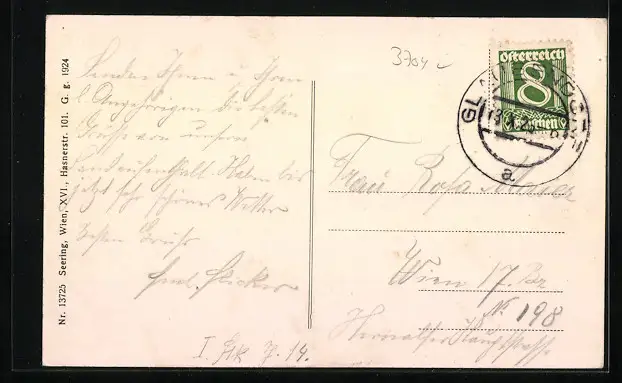 Nr. 13725 Seering, Wien, XVI., Hasnerstr. 101. G. g. 1924
3704 c
Senden Ihnen u. Ihren
l. Angehörigen die besten
Grüsse von unserem
Landaufenthalt. Haben bis
jetzt sehr schönes Wetter
Besten Gruß
österreich
8
Groschen
GL
a
Frau Rosa Moser
Wien 17. Bez
N. 198
Hernalser Hauptstrasse
I. Stk 7. 14.